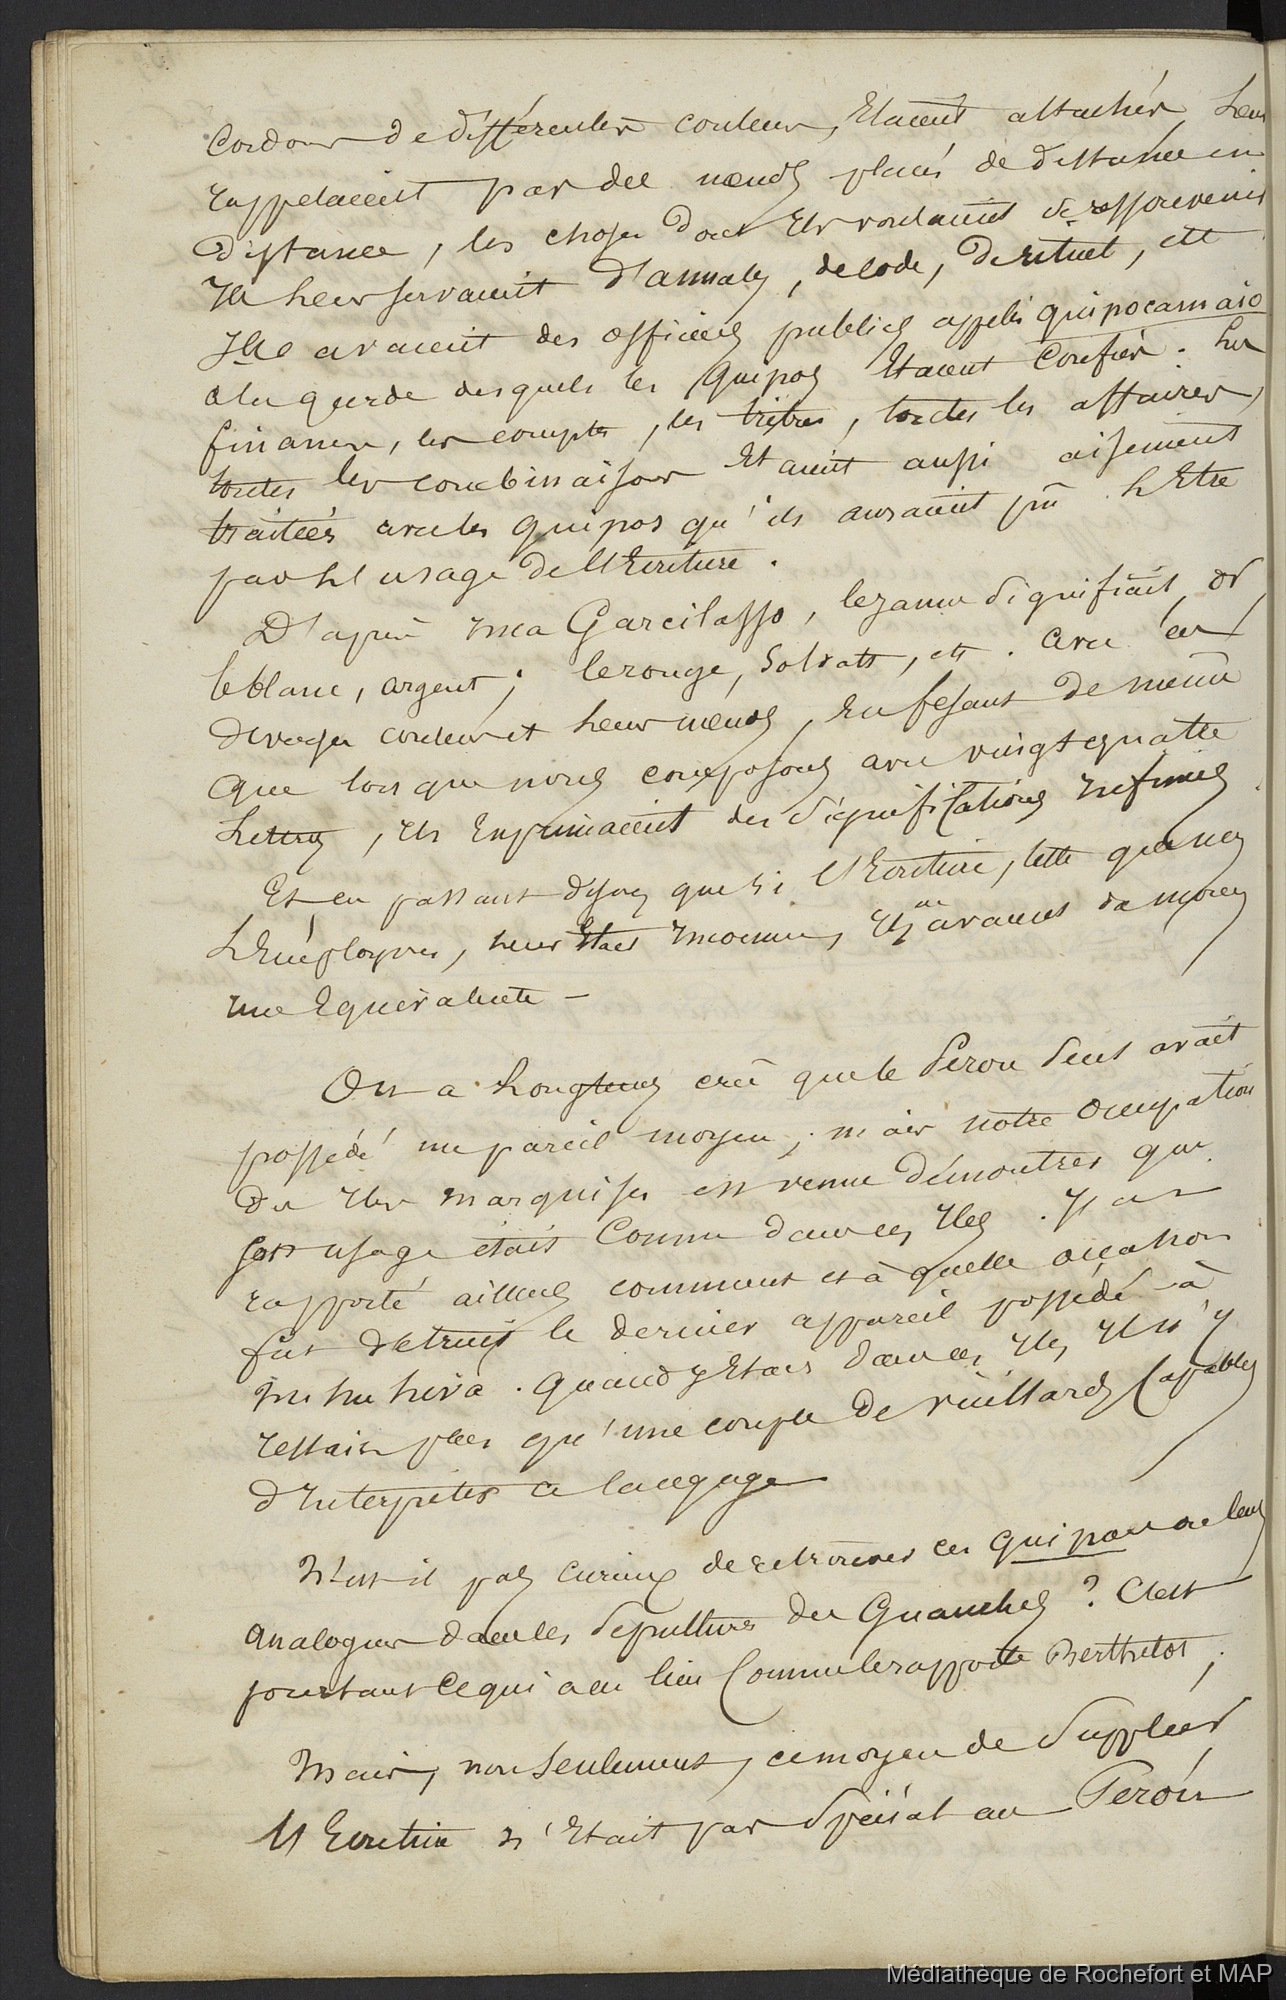 Cordons de différentes couleurs, Etaient attachés, Leur
rappelaient par des nœuds placés de distance en
distance, les choses dont Ils voulaient se ressouvenir
Ils Leur servaient d'annales, de code, de rituel, ett
Ils avaient des officiers publics appelés quipocamaio
a la garde desquels les Quipos Etaient Confiés. Les
finances, les comptes, les tributs, toutes les affaires,
toutes les combinaisons Etaient aussi aisement
traitées avec les quipos qu'ils auraient pû L'Etre
par L'usage de l'Ecriture.
D'après Inca Garcilasso, le jaune signifiait or,
le blanc, argent; le rouge, Soldats, ett. avec ces
diverses couleurs et Leurs nœuds, En fesant de même
que lorsque nous composons avec vingt quatre
Lettres, Ils Exprimaient des significations Infinies
Et en passant disons que si l'Ecriture, telle que nous
L'Employons, Leur Etait Inconnue, Ils en avaient du moins
une Equivalente —
On a Longtems crû que le Pérou Seul avait
possédé un pareil moyen; mais notre occupation
des Iles Marquises est venue démontrer que
son usage était Connu dans ces Iles. J'ai
rapporté ailleurs comment et à quelle occasion
fut détruit le dernier appareil possédé à
Nuhu hiva. Quand j'y Etais dans ces Iles, Il n'y
restait plus qu'une couple de vieillards Capables
d'Interpréter ce langage
N'est-il pas curieux de retrouver ces quipos ou leurs
analogues dans les Sépultures des Guanches? C'est
pourtant ce qui a eu lieu Comme le rapporte Berthelot;
Mais, non Seulement, ce moyen de Suppléer
l'Ecriture n'Etait pas Spécial au Pérou
Médiathèque de Rochefort et MAP